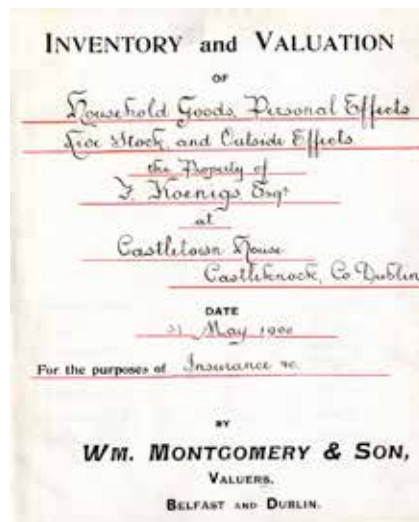 INVENTORY and VALUATION
OF
Household Goods, Personal Effects
Live Stock, and Outside Effects
the Property of
F. Koenigs Esqr
at
Castletown House
Castleknock, Co Dublin
DATE
May
For the purposes of Insurance &c.
BY
WM. MONTGOMERY & SON,
VALUERS.
BELFAST AND DUBLIN.